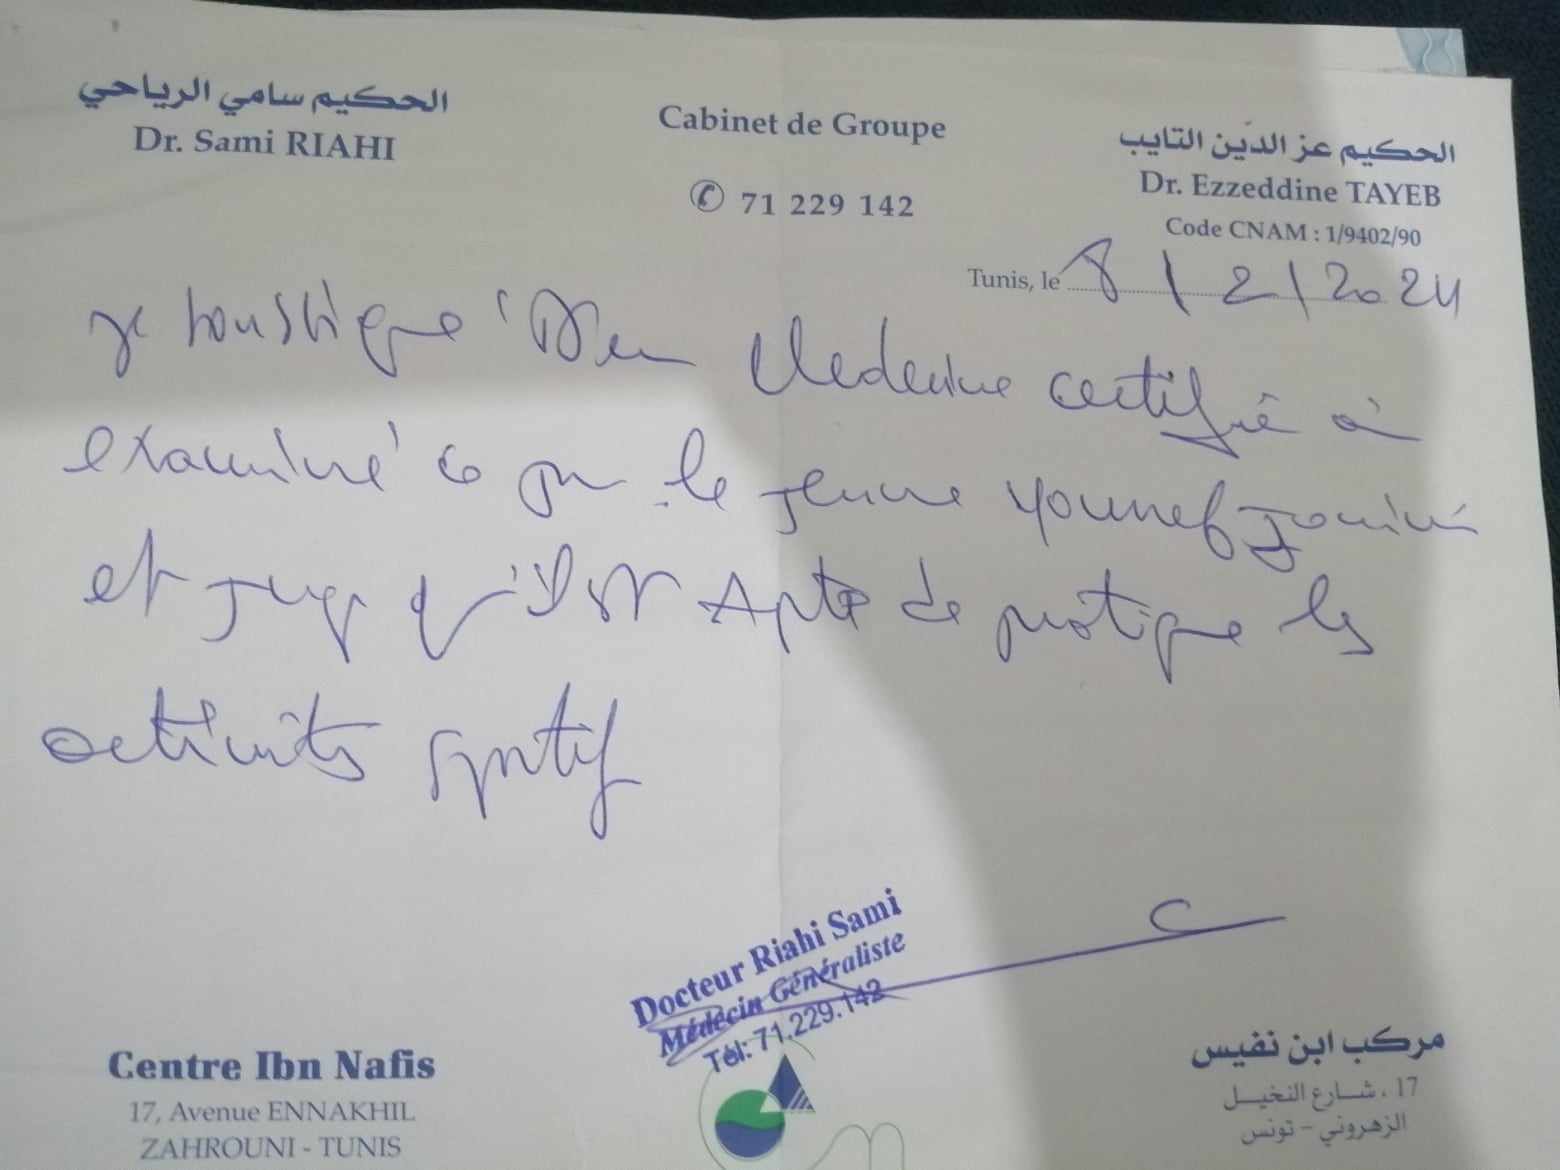 الحكيم سامي الرياحي
Dr. Sami RIAHI
Cabinet de Groupe
✆ 71 229 142
الحكيم عز الدّين التايب
Dr. Ezzeddine TAYEB
Code CNAM : 1/9402/90
Tunis, le 8/2/2024
je soussigné Medecine certifie à
examiné ce jour le jeune
et juge qu'il est Apte de pratique les
activités sportif
Docteur Riahi Sami
Médecin Généraliste
Tél: 71.229.142
Centre Ibn Nafis
17, Avenue ENNAKHIL
ZAHROUNI - TUNIS
مركب ابن نفيس
17 ، شارع النخيل
الزهروني - تونس